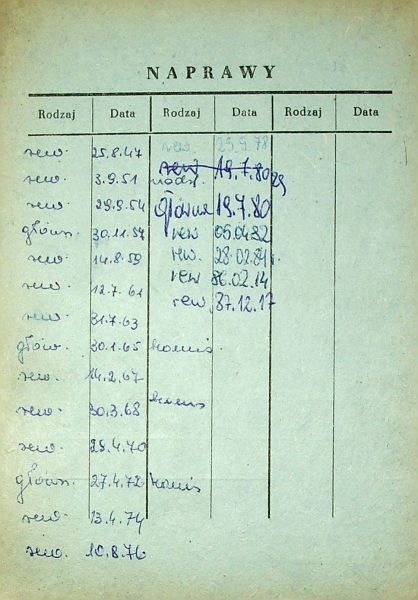 NAPRAWY
Rodzaj Data Rodzaj Data Rodzaj Data
rew. 25.8.47 rew. 25.9.78
rew. 3.9.51 rew 19.7.80
rew. 29.9.54 główna 19.7.80
główn. 30.11.57 rew 05.04.82
rew. 14.8.59 rew. 28.02.84r.
rew. 12.7.61 rew 86.02.14
rew. 31.7.63 rew 87.12.17
głów. 30.1.65
rew. 14.2.67
rew. 30.3.68
rew. 29.4.70
główn. 27.4.72
rew. 13.4.74
rew. 10.8.76